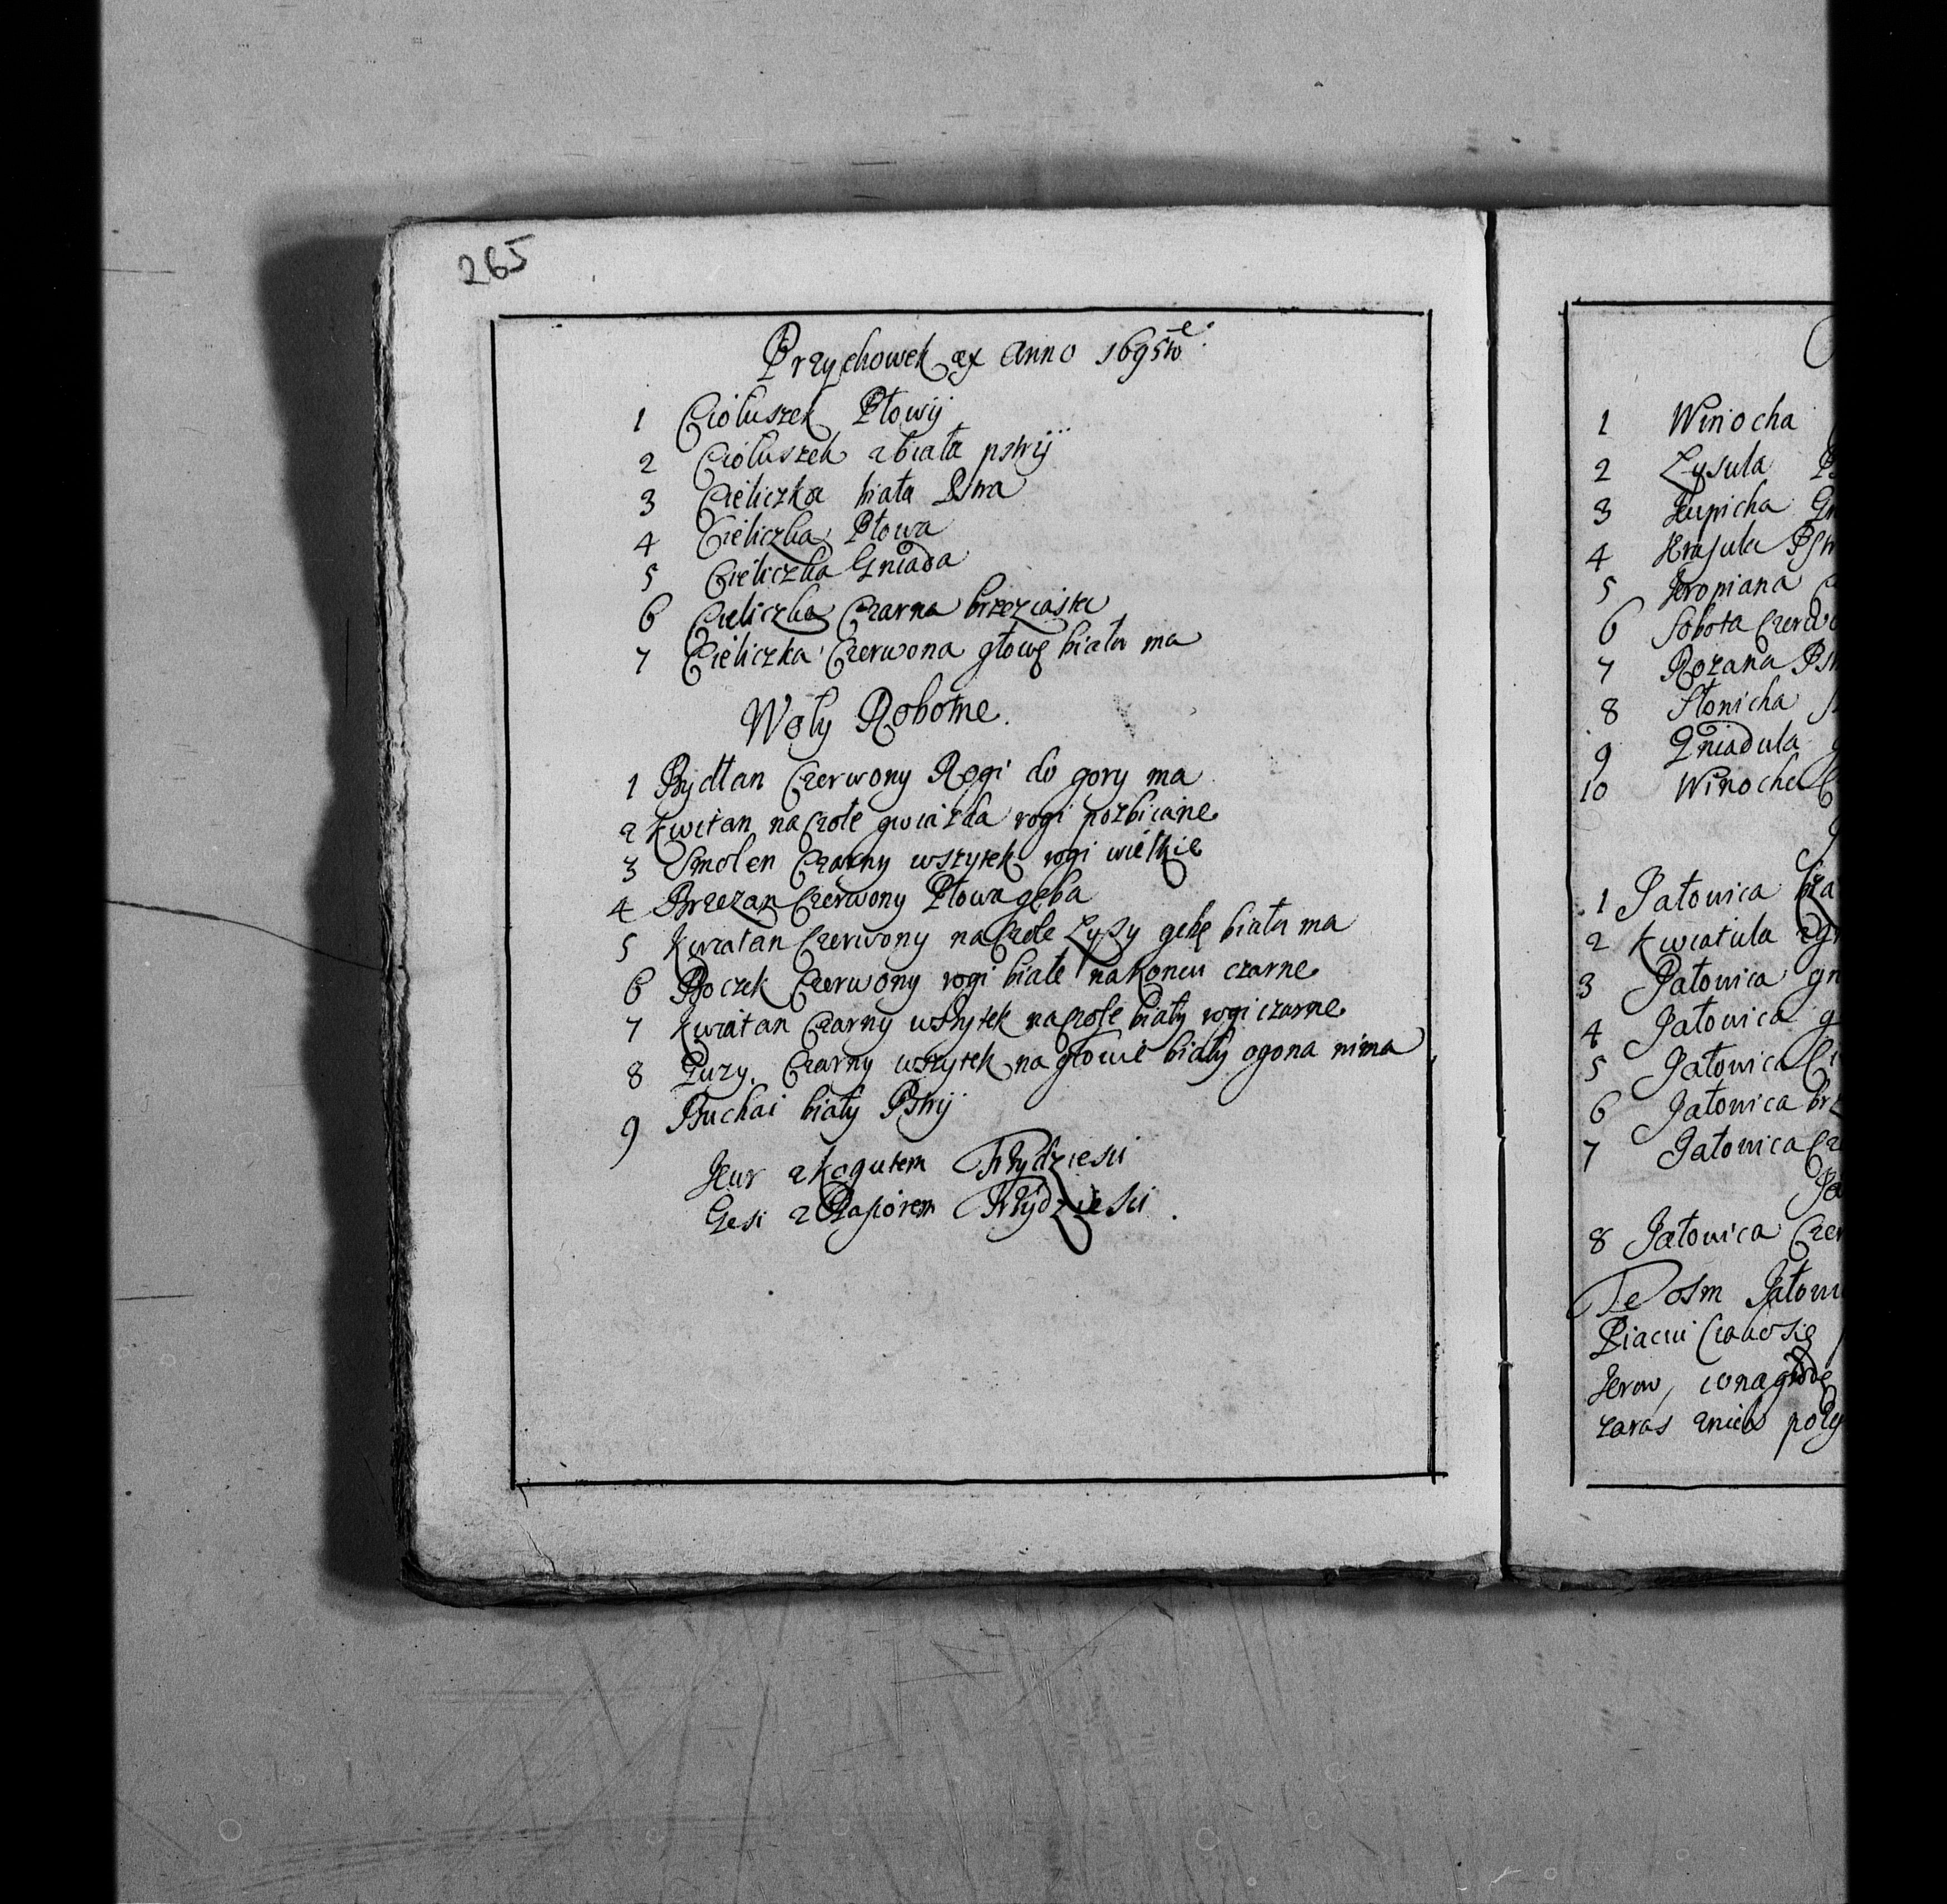 265
Przychowek ex Anno 1695to
1 Ciołuszek Płowij
2 Ciołuszek zbiała pstrij
3 Cieliczka biała Pstra
4 Cieliczka Płowa
5 Cieliczka Gniada
6 Cieliczka Czarna brzeziasta
7 Cieliczka Czerwona głowę biału ma
Woły Robotne.
1 Bydłan Czerwony Rogi do gory ma
2 Kwitan na czole gwiazda rogi pozbiiane
3 Smolen Czarny wszytek rogi wielkie
4 Brzezan Czerwony Płowa gęba
5 Kwiatan Czerwony na Czole Łysy gębę białą ma
6 Boczek Czerwony rogi białe na koncu czarne
7 Kwiatan Czarny wszytek na czole biały rogi czarne
8 Łuzy. Czarny wszytek na głowie biały ogona nima
9 Buchai biały Pstrij
Kur z Kogutem Trzydziesci
Gesi z Gąsiorem Trzydziesci.
1 Winocha
2 Łysula
3 Kupicha
4 Krasula
5 Kropiana
6 Sobota
7 Rozana
8 Słonicha
9 Gniadula
10 Winocha
1 Jałowica
2 Kwiatula
3 Jałowica
4 Jałowica
5 Jałowica
6 Jałowica
7 Jałowica
8 Jałowica
Te osm
zaras